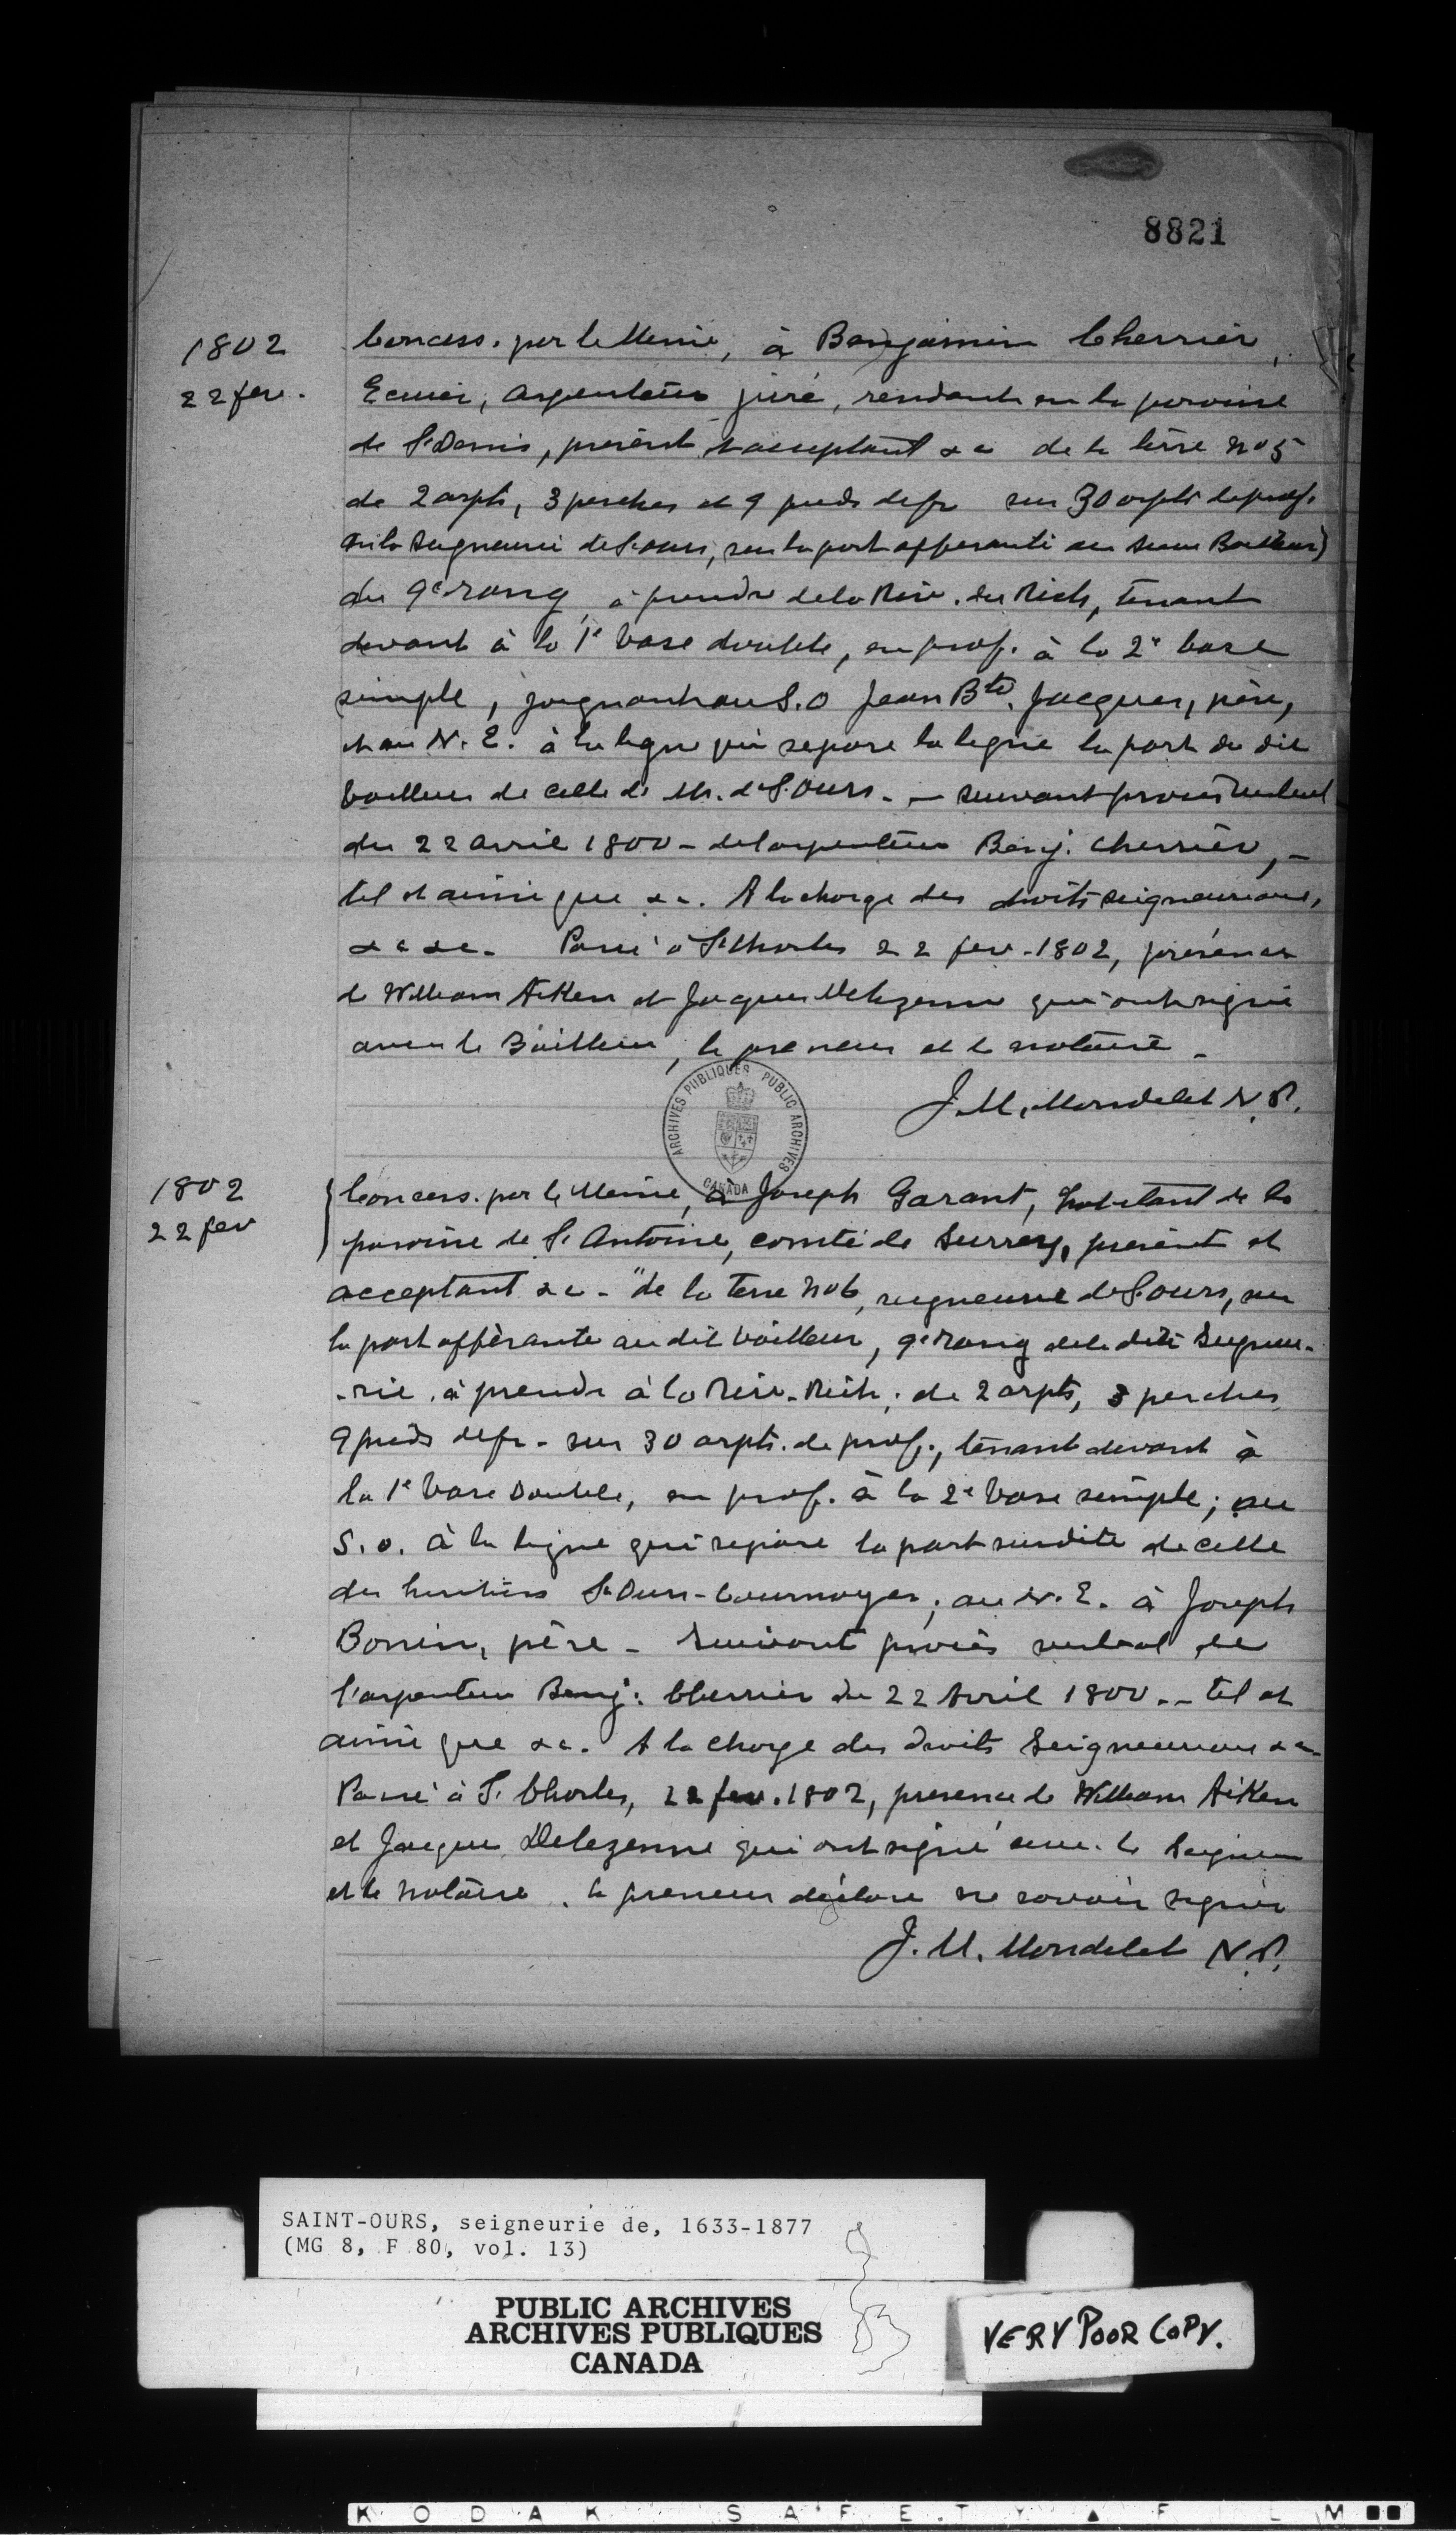 8821
1802
22 fev.
Concess. par le Meme, à Benjamin Cherrier,
Ecuier, arpenteur juré, résidant en la paroisse
de St Denis, présent & acceptant &c de la terre No 5
de 2 arpts, 3 perches et 9 pieds de fr sur 30 arpts de prof.
en la Seigneurie de St Ours, sur la part afferante au Sieur Bailleur)
du 9e rang, à prendre de la Riv. du Rich, tenant
devant à la 1e base double, en prof. à la 2e base
simple, joignant au S.O Jean Bte. Jacques, père,
et au N.E. à la ligne qui separe la ligne la part du dit
bailleur de celle de Mr. de St Ours. — suivant procès verbal
du 22 avril 1800 - de l'arpenteur Benj. Cherrier, -
tel et ainsi que &c. A la charge des droits seigneuriaux,
&c &c. Passé à St Charles 22 fev. 1802, présence
de William Aiken et Jacques Delezenne qui ont signé
avec le Bailleur, le preneur et le notaire -
J. M. Mondelet N.P.
ARCHIVES PUBLIQUES PUBLIC ARCHIVES
CANADA
1802
22 fev
Concess. par le Meme, à Joseph Garant, habitant de la
paroisse de St Antoine, comté de Surrey, présent et
acceptant &c - "de la terre No 6, seigneurie de St Ours, sur
la part afférante au dit bailleur, 9e rang de la dite Seigneu-
-rie, à prendre à la Riv. Rich, de 2 arpts, 3 perches
9 pieds de fr - sur 30 arpts. de prof., tenant devant à
la 1e base double, en prof. à la 2e base simple; au
S.O. à la ligne qui separe la part susdite de celle
des heritiers St Ours-Cournoyer; au N.E. à Joseph
Bonin, père - Suivant procès verbal de
l'arpenteur Benj. Cherrier du 22 Avril 1800 -- tel et
ainsi que &c. A la charge des droits Seigneuriaux &c-
Passé à St Charles, 22 fev. 1802, presence de William Aiken
et Jacques Delezenne qui ont signé avec le Seigneur
et le notaire, le preneur déclare ne savoir signer
J. M. Mondelet N.P.
SAINT-OURS, seigneurie de, 1633-1877
(MG 8, F 80, vol. 13)
PUBLIC ARCHIVES
ARCHIVES PUBLIQUES
CANADA
VERY POOR COPY.
KODAK SAFETY FILM